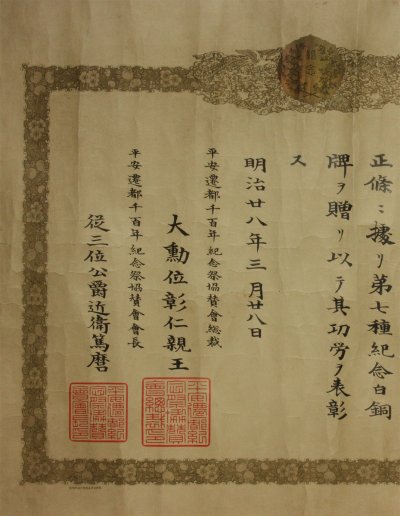 正條ニ據リ第七種紀念白銅
牌ヲ贈リ以テ其功労ヲ表彰
ス
明治廿八年三月廿八日
平安遷都千百年紀念祭協賛會総裁
大勲位彰仁親王
平安遷都千百年紀念祭協賛會會長
從三位公爵近衞篤麿